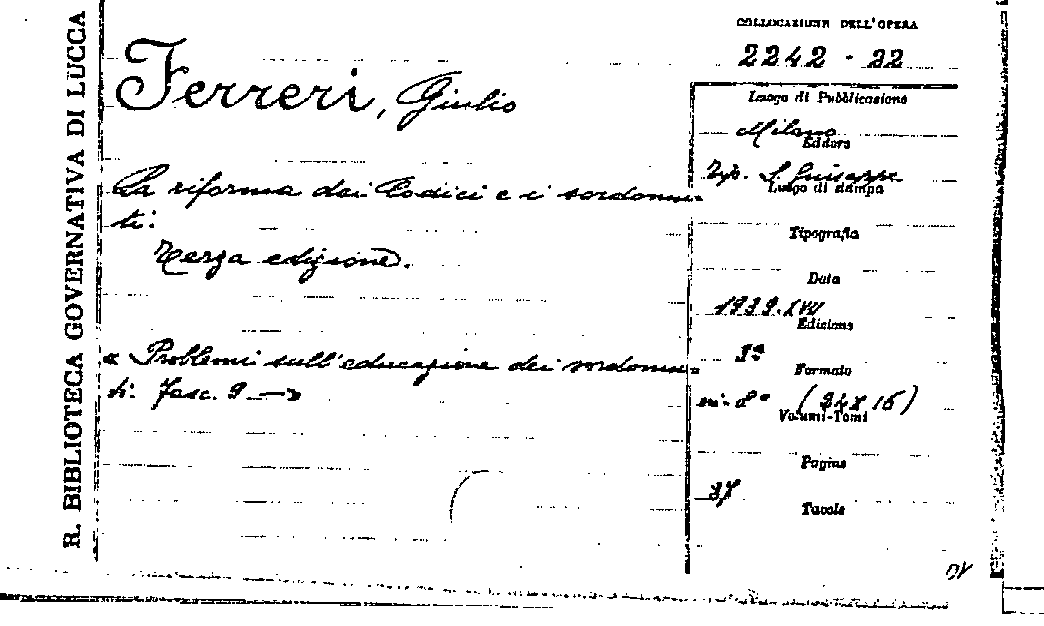 R. BIBLIOTECA GOVERNATIVA DI LUCCA
COLLOCAZIONE DELL'OPERA
2242 - 22
Ferreri, Giulio
La riforma dei Codici e i sordomu-
ti:
Terza edizione.
« Problemi sull'educazione dei sordomu-
ti: Fasc. 9 —»
Luogo di Pubblicazione
Milano
Editore
Tip. S. Giuseppe
Luogo di stampa
Tipografia
Data
1939.XVII
Edizione
3ª
Formato
in-8° (24x16)
Volumi-Tomi
Pagine
37
Tavole